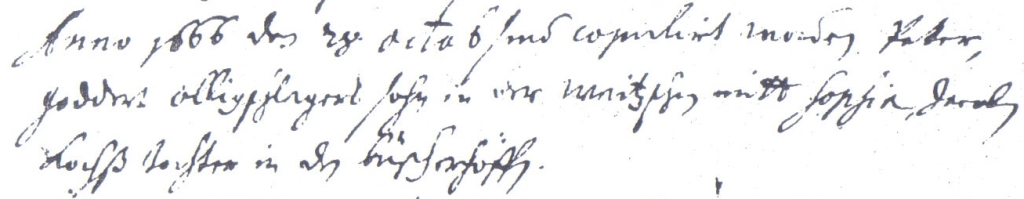 Anno 1666 den 28 octob sind copulirt worden Peter,
goddert olligschlagers sohn in der weitschen mitt sophia, Jacoben
kochß tochter in den büscherhöffen.